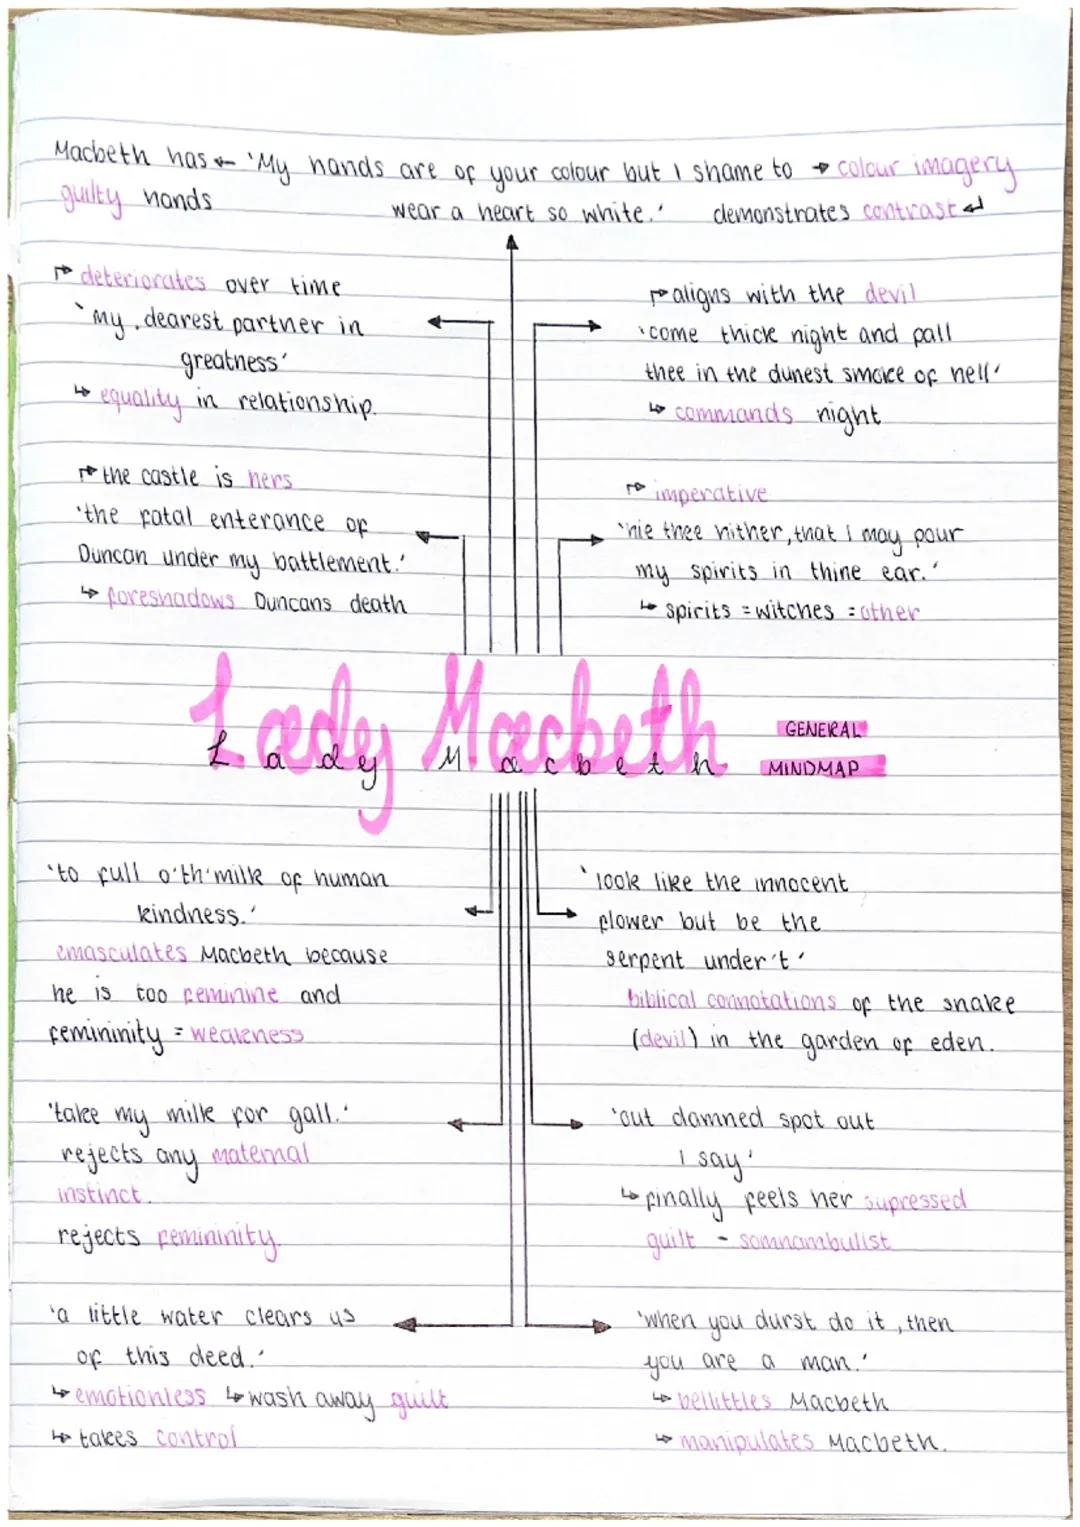 Macbeth has ← 'My hands are of your colour but I shame to → colour imagery
guilty hands wear a heart so white.' demonstrates contrast ↲
↱ deteriorates over time
'my dearest partner in
greatness'
↳ equality in relationship.
↱ aligns with the devil
'come thick night and pall
thee in the dunest smoke of hell'
↳ commands night
↱ the castle is hers
'the fatal enterance of
Duncan under my battlement.'
↳ foreshadows Duncans death
↱ imperative
'hie thee hither, that I may pour
my spirits in thine ear.'
↳ spirits = witches = other
Lady Macbeth
Lady Macbeth
GENERAL
MINDMAP
'to full o'th'milk of human
kindness.'
emasculates Macbeth because
he is too feminine and
femininity = weakness
'look like the innocent
flower but be the
serpent under't'
biblical connotations of the snake
(devil) in the garden of eden.
'take my milk for gall.'
rejects any maternal
instinct.
rejects femininity.
'out damned spot out
I say'
↳ finally feels her supressed
guilt - somnambulist
'a little water clears us
of this deed.'
↳ emotionless ↳ wash away guilt
↳ takes control
'when you durst do it, then
you are a man.'
↳ bellittles Macbeth
↳ manipulates Macbeth.